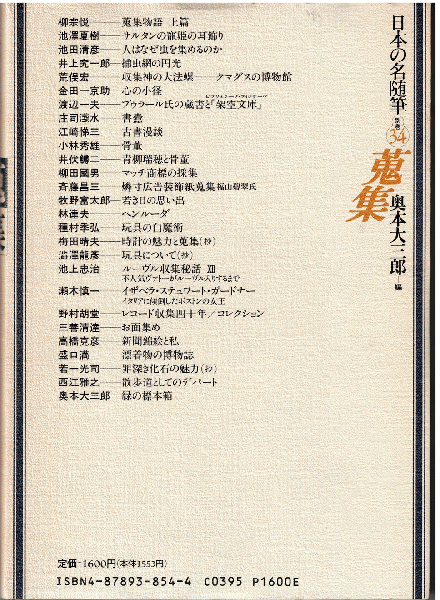 日本の名随筆
別巻34
蒐集
奥本大三郎 編
柳宗悦――蒐集物語 上篇
池澤夏樹――サルタンの寵姫の耳飾り
池田清彦――人はなぜ虫を集めるのか
井上究一郎――捕虫網の円光
荒俣宏――収集神の大法螺――クマグスの博物館
金田一京助――心の小径
渡辺一夫――ブゥラール氏の蔵書と「架空文庫」
庄司浅水――書蠹
江崎悌三――古書漫談
小林秀雄――骨董
井伏鱒二――青柳瑞穂と骨董
柳田國男――マッチ商標の採集
斉藤昌三――燐寸広告装飾紙蒐集福山碧翠氏
牧野富太郎――若き日の思い出
林達夫――ヘンルーダ
種村季弘――玩具の白魔術
梅田晴夫――時計の魅力と蒐集(抄)
澁澤龍彦――玩具について(抄)
池上忠治――ルーヴル収集秘話 XII
不人気ヴァトーがルーヴル入りするまで
瀬木慎一――イザベラ・スチュワート・ガードナー
イタリアに傾倒したボストンの女王
野村胡堂――レコード収集四十年/コレクション
三善清達――お面集め
高橋克彦――新聞錦絵と私
盛口満――漂着物の博物誌
若一光司――罪深き化石の魅力(抄)
西江雅之――散歩道としてのデパート
奥本大三郎――緑の標本箱
定価=1600円(本体1553円)
ISBN4-87893-854-4 C0395 P1600E